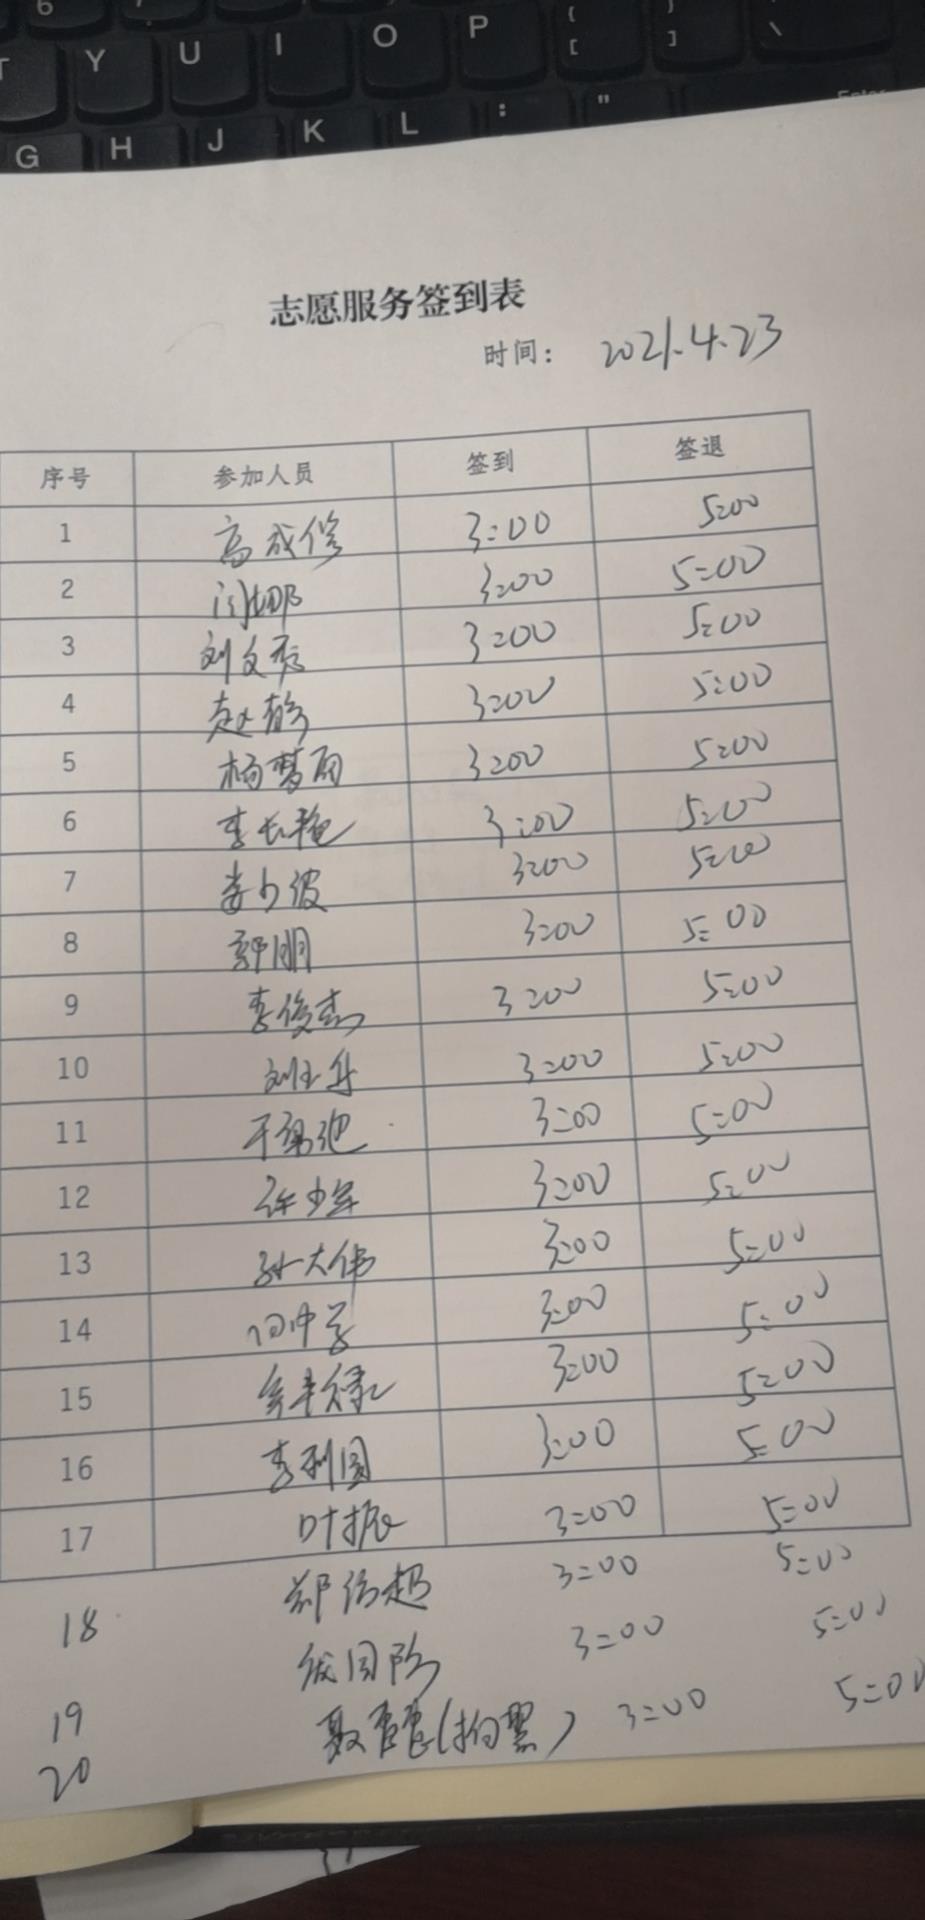 6
T Y U I O P { [ } ] \
G H J K L : " Enter
志愿服务签到表
时间： 2021.4.23
序号 参加人员 签到 签退
1 高成修 3:00 5:00
2 闫娜 3:00 5:00
3 刘文秀 3:00 5:00
4 赵静 3:00 5:00
5 杨梦雨 3:00 5:00
6 李长艳 3:00 5:00
7 娄少波 3:00 5:00
8 郭朋 3:00 5:00
9 李俊杰 3:00 5:00
10 刘玉升 3:00 5:00
11 3:00 5:00
12 许少军 3:00 5:00
13 孙大伟 3:00 5:00
14 3:00 5:00
15 3:00 5:00
16 李利圆 3:00 5:00
17 叶振 3:00 5:00
18 郑伟超 3:00 5:00
19 3:00 5:00
20 3:00 5:00